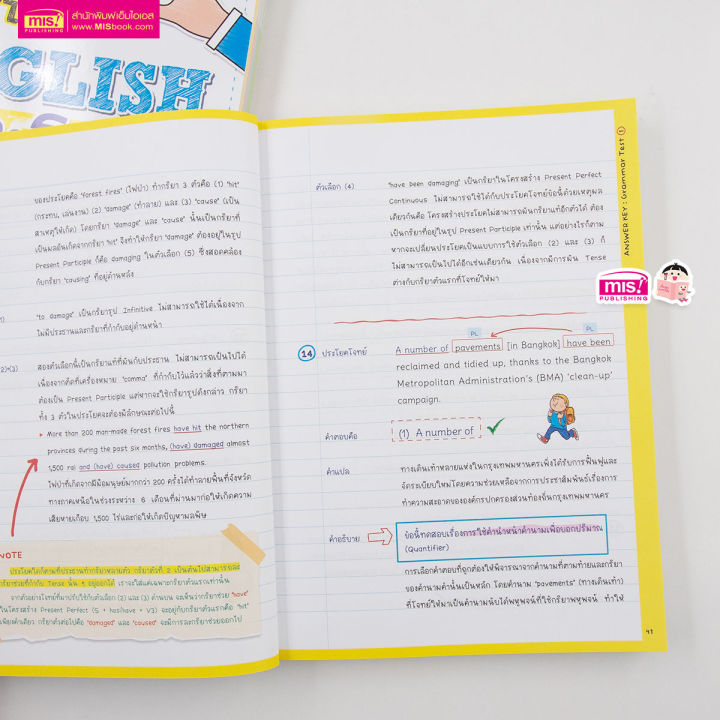 mis!
PUBLISHING
สำนักพิมพ์เอ็มไอเอส
www.MISbook.com
GLISH
ของประโยคคือ "forest fires" (ไฟป่า) ทำกริยา 3 ตัวคือ (1) "hit"
(กระทบ, เล่นงาน) (2) "damage" (ทำลาย) และ (3) "cause" (เป็น
สาเหตุให้เกิด) โดยกริยา "damage" และ "cause" นั้นเป็นกริยาที่
เป็นผลอันเกิดจากกริยา "hit" จึงทำให้กริยา "damage" ต้องอยู่ในรูป
Present Participle ก็คือ damaging ในตัวเลือก (5) ซึ่งสอดคล้อง
กับกริยา "causing" ที่อยู่ด้านหลัง
"to damage" เป็นกริยารูป Infinitive ไม่สามารถใช้ได้เนื่องจาก
ไม่มีประธานและกริยาที่กำกับอยู่ด้านหน้า
สองตัวเลือกนี้เป็นกริยาแท้ที่ผันกับประธาน ไม่สามารถเป็นไปได้
เนื่องจากติดที่เครื่องหมาย "comma" ที่กำกับไว้แล้วว่าสิ่งที่ตามมา
ต้องเป็น Present Participle แต่หากจะใช้กริยารูปดังกล่าว กริยา
ทั้ง 3 ตัวในประโยคจะต้องมีลักษณะต่อไปนี้
More than 200 man-made forest fires have hit the northern
provinces during the past six months, (have) damaged almost
1,500 rai and (have) caused pollution problems.
ไฟป่าที่เกิดจากฝีมือมนุษย์มากกว่า 200 ครั้งได้ทำลายพื้นที่จังหวัด
ทางภาคเหนือในช่วงระหว่าง 6 เดือนที่ผ่านมาก่อให้เกิดความ
เสียหายเกือบ 1,500 ไร่และก่อให้เกิดปัญหามลพิษ
NOTE
ประโยคใดก็ตามที่ประธานทำกริยาหลายตัว กริยาตัวที่ 2 เป็นต้นไปสามารถละ
กริยาช่วยที่กำกับ Tense นั้น ๆ อยู่ออกได้ เราจะใส่แค่เฉพาะกริยาตัวแรกเท่านั้น
จากตัวอย่างโจทย์ที่มาปรับใช้กับตัวเลือก (2) และ (3) ด้านบน จะเห็นว่ากริยาช่วย "have"
ในโครงสร้าง Present Perfect (S + has/have + V3) จะอยู่กับกริยาตัวแรกคือ "hit"
เพียงคำเดียว กริยาตัวต่อไปคือ "damaged" และ "caused" จะมีการละกริยาช่วยออกไป
ตัวเลือก (4)
"have been damaging" เป็นกริยาในโครงสร้าง Present Perfect
Continuous ไม่สามารถใช้ได้กับประโยคโจทย์ข้อนี้ด้วยเหตุผล
เดียวกันคือ โครงสร้างประโยคไม่สามารถผันกริยาแท้อีกตัวได้ ต้อง
เป็นกริยาที่อยู่ในรูป Present Participle เท่านั้น แต่อย่างไรก็ตาม
หากจะเปลี่ยนประโยคเป็นแบบการใช้ตัวเลือก (2) และ (3) ก็
ไม่สามารถเป็นไปได้อีกเช่นเดียวกัน เนื่องจากมีการผัน Tense
ต่างกับกริยาตัวแรกที่โจทย์ให้มา
ANSWER KEY : Grammar Test 1
mis!
PUBLISHING
PL
PL
14 ประโยคโจทย์
A number of pavements [in Bangkok] have been
reclaimed and tidied up, thanks to the Bangkok
Metropolitan Administration's (BMA) 'clean-up'
campaign.
คำตอบคือ
(1) A number of
คำแปล
ทางเดินเท้าหลายแห่งในกรุงเทพมหานครเพิ่งได้รับการฟื้นฟูและ
จัดระเบียบใหม่โดยความช่วยเหลือจากการประชาสัมพันธ์เรื่องการ
ทำความสะอาดขององค์กรปกครองส่วนท้องถิ่นกรุงเทพมหานคร
คำอธิบาย
ข้อนี้ทดสอบเรื่องการใช้คำนำหน้าคำนามเพื่อบอกปริมาณ
(Quantifier)
การเลือกคำตอบที่ถูกต้องให้พิจารณาจากคำนามที่ตามท้ายและกริยา
ของคำนามคำนั้นเป็นหลัก โดยคำนาม "pavements" (ทางเดินเท้า)
ที่โจทย์ให้มาเป็นคำนามนับได้พหูพจน์ที่ใช้กริยาพหูพจน์ ทำให้
47